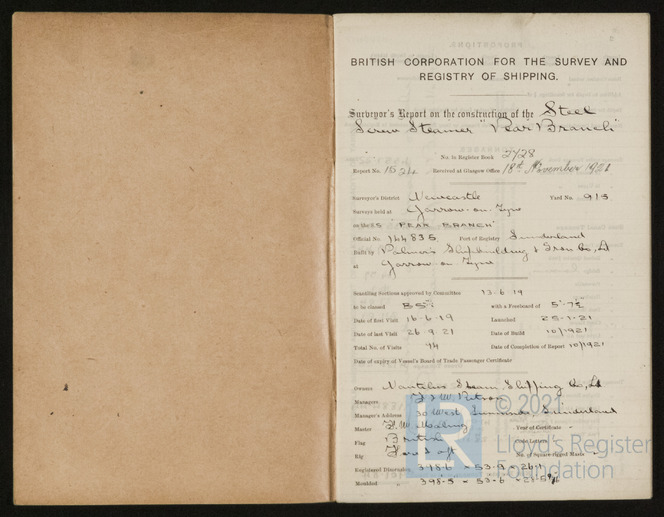 BRITISH CORPORATION FOR THE SURVEY AND
REGISTRY OF SHIPPING.
Surveyor's Report on the construction of the Steel
Screw Steamer "Pear Branch"
No. in Register Book 2728
Report No. 1524 Received at Glasgow Office 18th November 1921
Surveyor's District Newcastle Yard No. 913
Surveys held at Jarrow-on-Tyne
on the S.S. "PEAR BRANCH"
Official No. 144835 Port of Registry Sunderland
Built by Palmers Shipbuilding & Iron Co, Ld
at Jarrow on Tyne
Scantling Sections approved by Committee 13.6.19
to be classed BS* with a Freeboard of 5'-7½
Date of first Visit 16-6-19 Launched 25-1-21
Date of last Visit 26.9.21 Date of Build 10/1921
Total No. of Visits 94 Date of Completion of Report 10/1921
Date of expiry of Vessel's Board of Trade Passenger Certificate
Owners Nautilus Steam Shipping Co, Ld
Managers F & W Ritson
Manager's Address 30 West Sunniside, Sunderland
Master Year of Certificate
Flag British Code Letters
Rig No. of Square rigged Masts
Registered Dimensions 398.6 × 53.9 × 26.1
Moulded 398.5 × 53.6
LR
© 2021
Lloyd's Register
Foundation